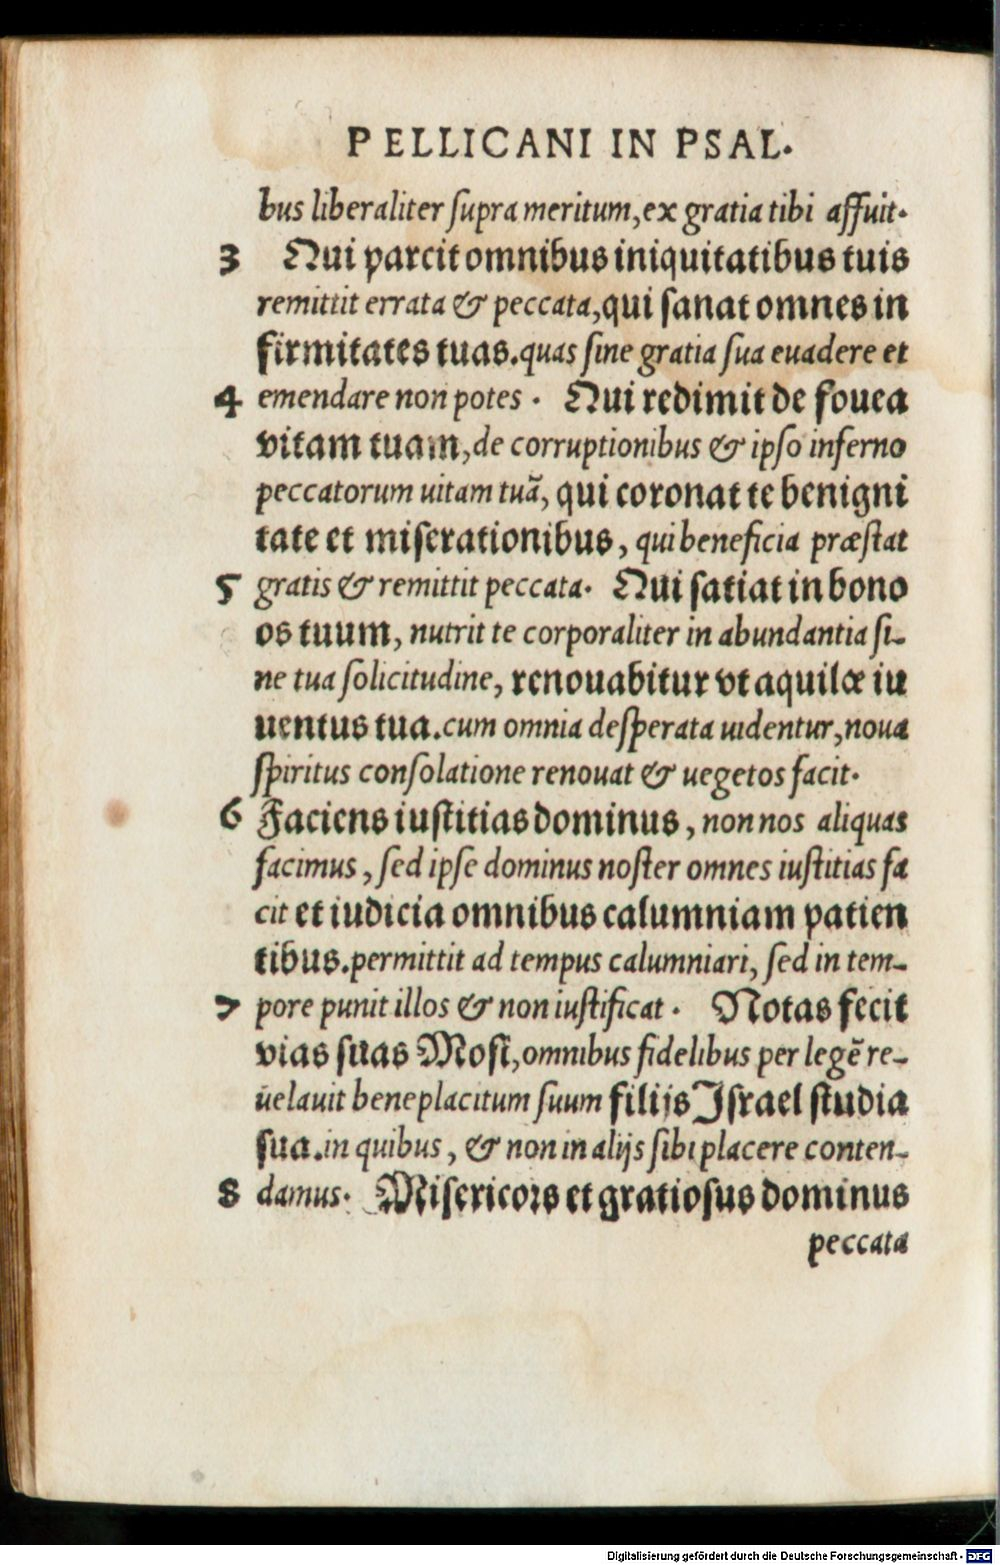 PELLICANI IN PSAL.
bus liberaliter ſupra meritum, ex gratia tibi affuit.
3 Qui parcit omnibus iniquitatibus tuis
remittit errata & peccata, qui ſanat omnes in
firmitates tuas. quas ſine gratia ſua euadere et
4 emendare non potes. Qui redimit de fouea
vitam tuam, de corruptionibus & ipſo inferno
peccatorum uitam tuã, qui coronat te benigni
tate et miſerationibus, qui beneficia præſtat
5 gratis & remittit peccata. Qui ſatiat in bono
os tuum, nutrit te corporaliter in abundantia ſi-
ne tua ſolicitudine, renouabitur vt aquilæ iu
uentus tua. cum omnia deſperata uidentur, noua
ſpiritus conſolatione renouat & uegetos facit.
6 Faciens iuſtitias dominus, non nos aliquas
facimus, ſed ipſe dominus noſter omnes iuſtitias fa
cit et iudicia omnibus calumniam patien
tibus. permittit ad tempus calumniari, ſed in tem-
7 pore punit illos & non iuſtificat. Notas fecit
vias ſuas Moſi, omnibus fidelibus per legẽ re-
uelauit beneplacitum ſuum filijs Iſrael ſtudia
ſua. in quibus, & non in alijs ſibi placere conten-
8 damus. Miſericors et gratioſus dominus
peccata
Digitalisierung gefördert durch die Deutsche Forschungsgemeinschaft - DFG